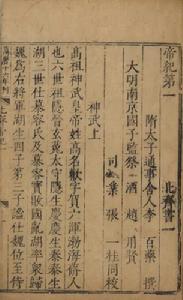 帝紀第一 北齊書一
隋太子通事舍人李 百藥 撰
大明南京國子監祭酒趙用賢
司業張一桂同校
神武上
高祖神武皇帝姓高名歡字賀六渾渤海蓨人
也六世祖隱晉玄菟太守隱生慶慶生泰泰生
湖三世仕慕容氏及慕容寶敗國亂湖率眾歸
魏為右將軍湖生四子第三子謐仕魏位至侍